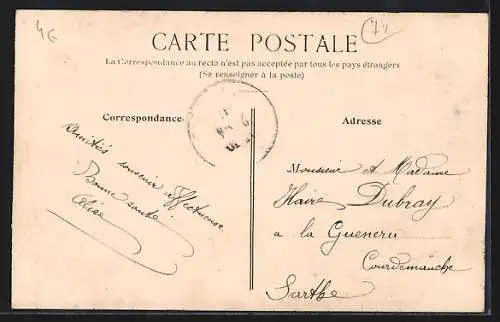 4€
74
CARTE POSTALE
La Correspondance au recto n'est pas acceptée par tous les pays étrangers
(Se renseigner à la poste)
Correspondance
Adresse
Amitiés souvenir affectueuse
Bonne santé
Elise
Monsieur et Madame
Dubray
a la
Courdemanche
Sarthe